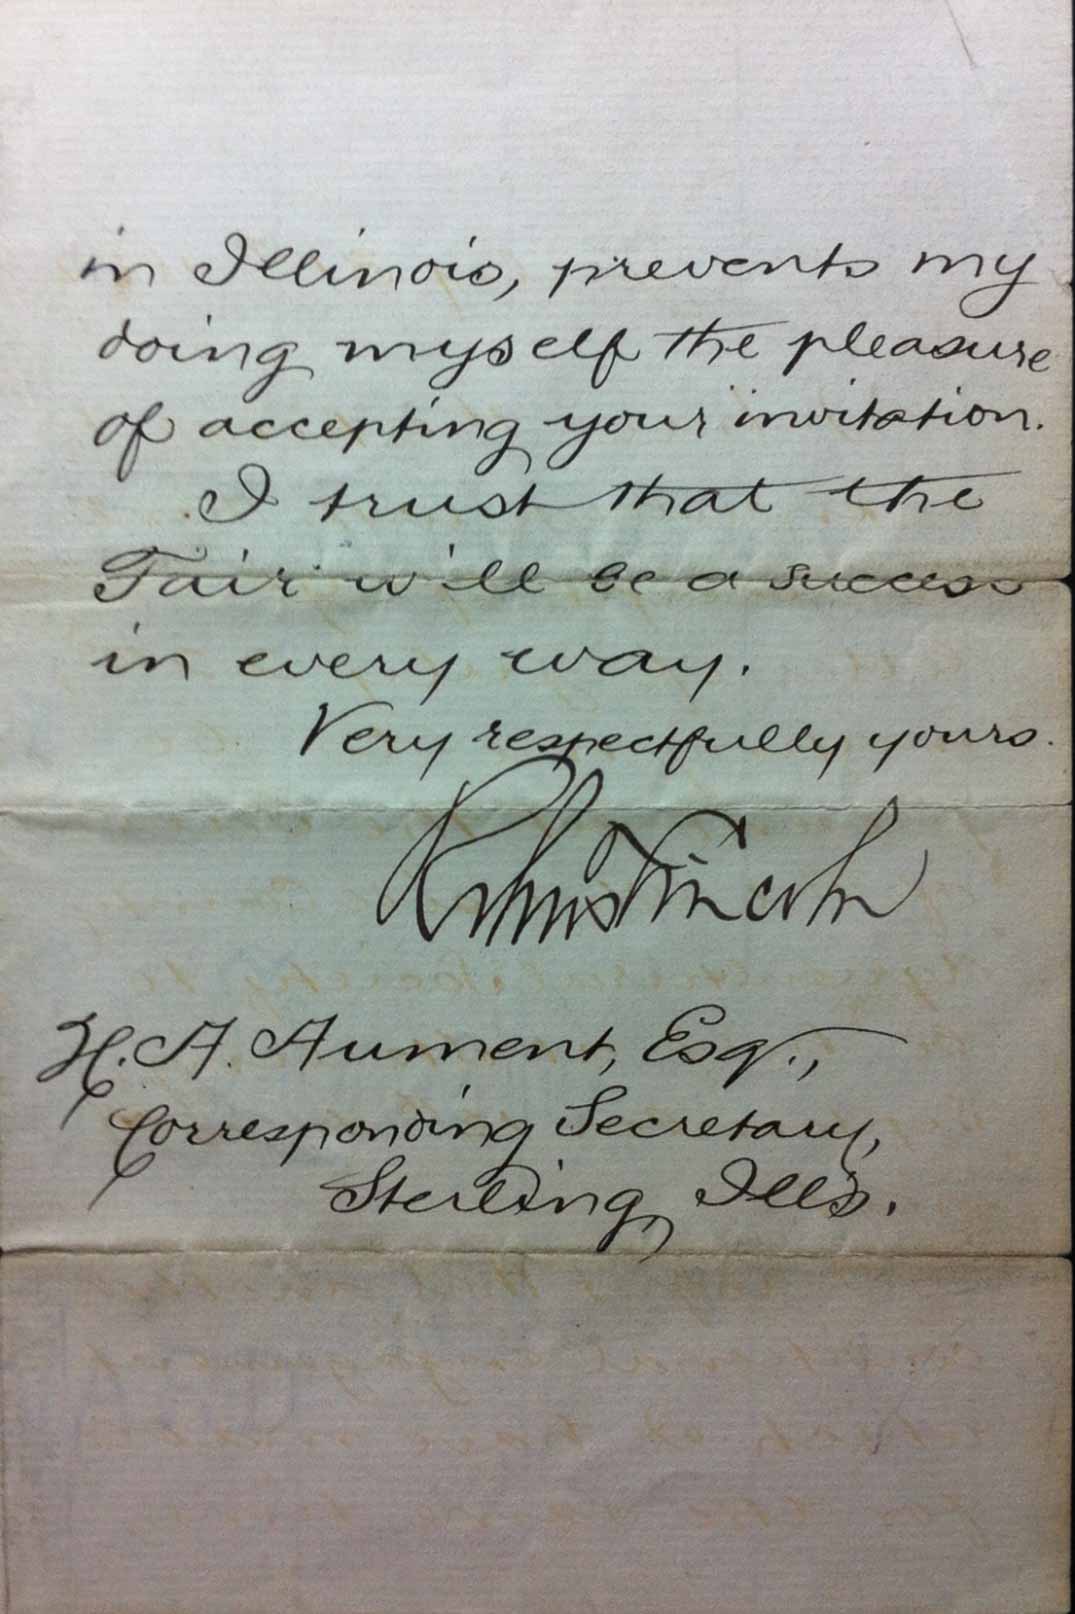 in Illinois, prevents my
doing myself the pleasure
of accepting your invitation.
I trust that the
Fair will be a success
in every way.
Very respectfully yours.
Lincoln
H. A. Aument, Esq.,
Corresponding Secretary,
Sterling, Ills.